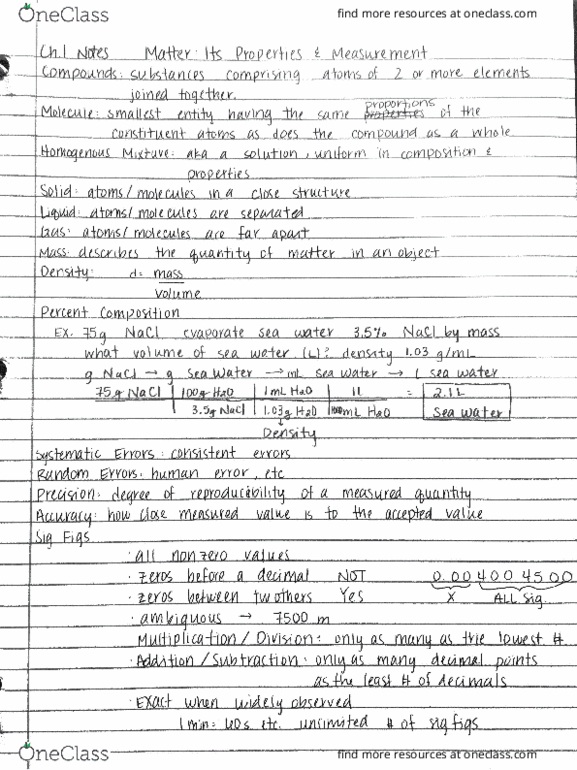 OneClass find more resources at oneclass.com
Ch.1 Notes Matter: Its Properties & Measurement
Compounds: substances comprising atoms of 2 or more elements
joined together.
Molecule: smallest entity having the same properties proportions of the
constituent atoms as does the compound as a whole
Homogenous Mixture: aka a solution, uniform in composition &
properties
Solid: atoms/molecules in a close structure
Liquid: atoms/molecules are separated
Gas: atoms/molecules are far apart
Mass: describes the quantity of matter in an object
Density: d= mass
volume
Percent Composition
Ex. 75g NaCl evaporate sea water 3.5% NaCl by mass
what volume of sea water (L)? density 1.03 g/mL
g NaCl → g sea water → mL sea water → L sea water
75g NaCl | 100g H2O | 1mL H2O | 1L = 2.1L
3.5g NaCl | 1.03g H2O | 1000mL H2O Sea water
Density
Systematic Errors: consistent errors
Random Errors: human error, etc
Precision: degree of reproducibility of a measured quantity
Accuracy: how close measured value is to the accepted value
Sig Figs
· all nonzero values
· zeros before a decimal NOT 0.004004500
· zeros between two others Yes X ALL Sig.
· ambiguous → 7500 m
Multiplication/Division: only as many as the lowest #
· Addition/Subtraction: only as many decimal points
as the least # of decimals
· Exact when widely observed
1min= 60s etc. unlimited # of sig figs
OneClass find more resources at oneclass.com